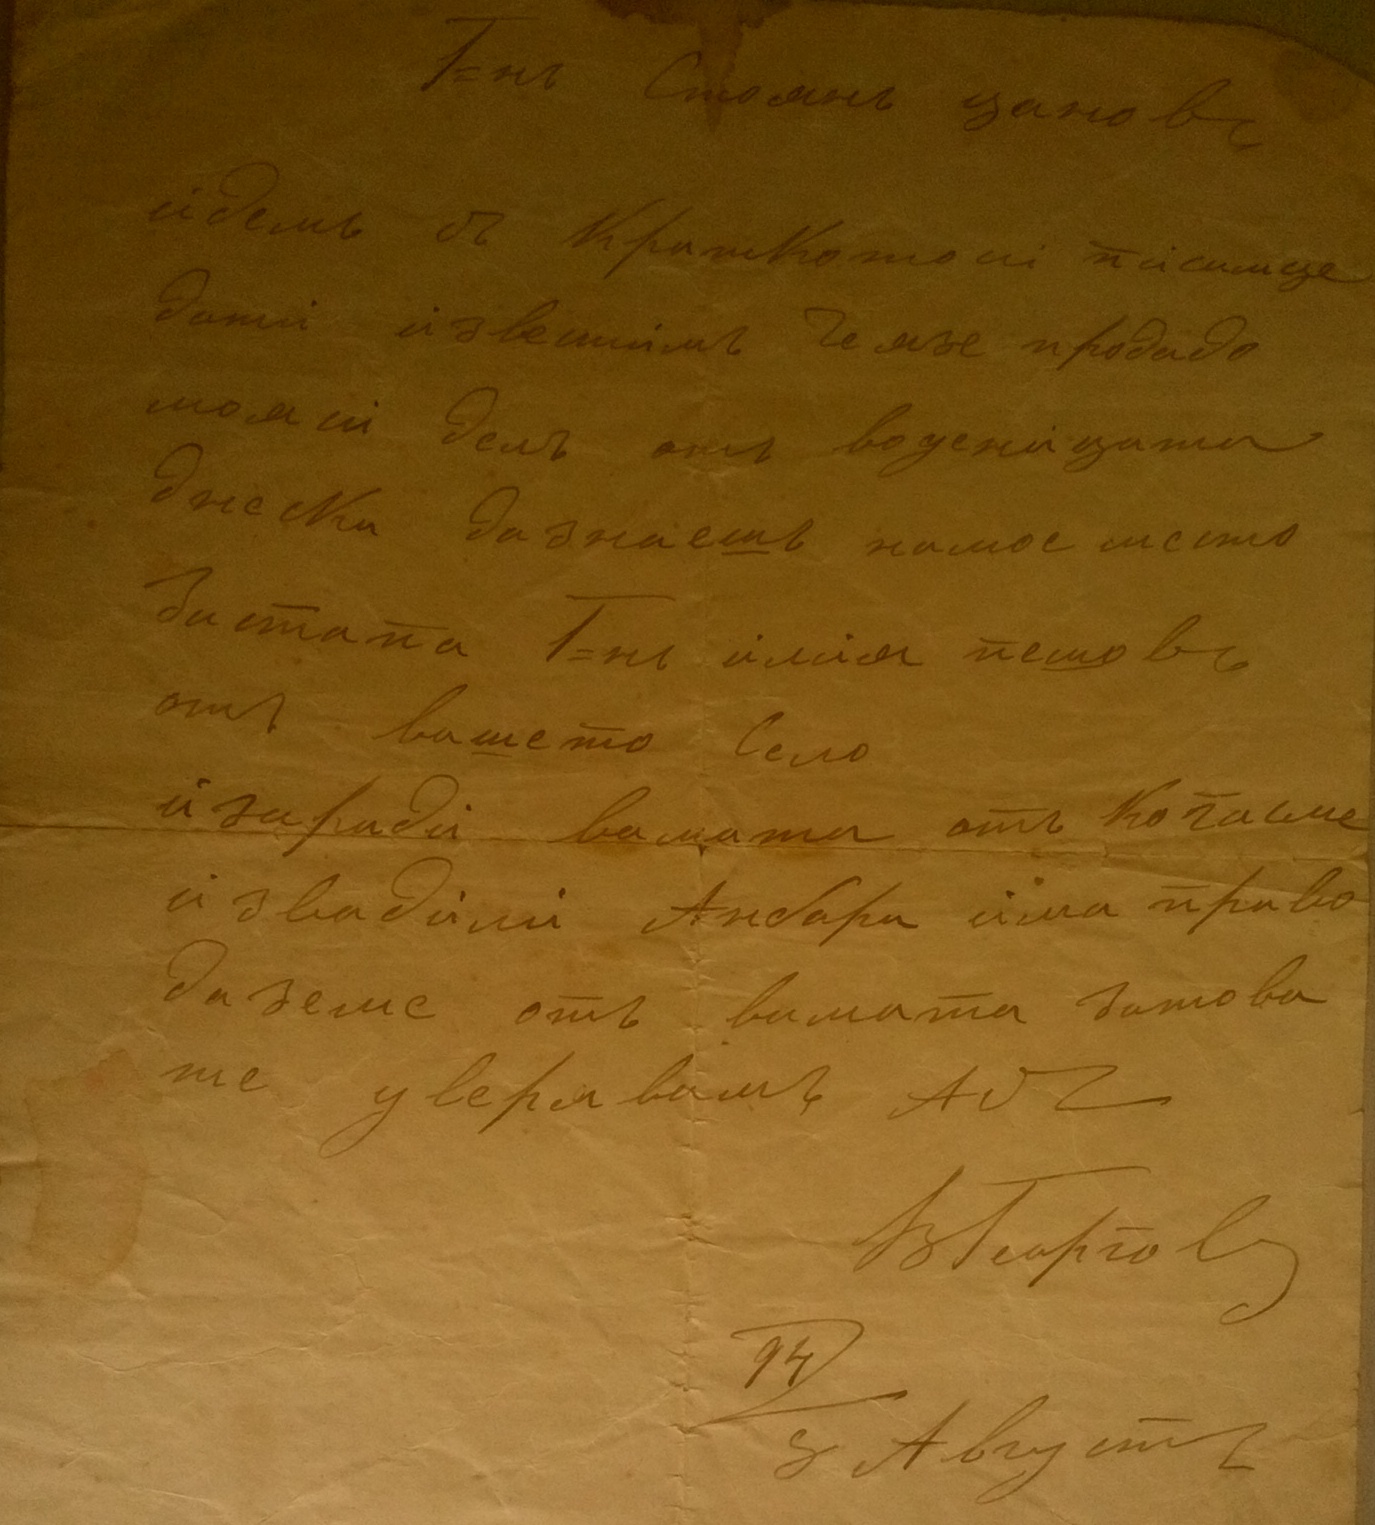 Г=нъ Стоянъ цановъ
идемъ съ Краткотоси писимце
дати известимъ Че язе продадо
мояси делъ отъ воденицата
днеска дазнаешъ намое место
Застапа Г=нъ илия пешовъ
отъ вашето Село
изаради вамата отъ Кочасме
извадили Анбара има право
даземе отъ вамата затова
те уверявамъ
ВГеоргов
94
3 Августъ